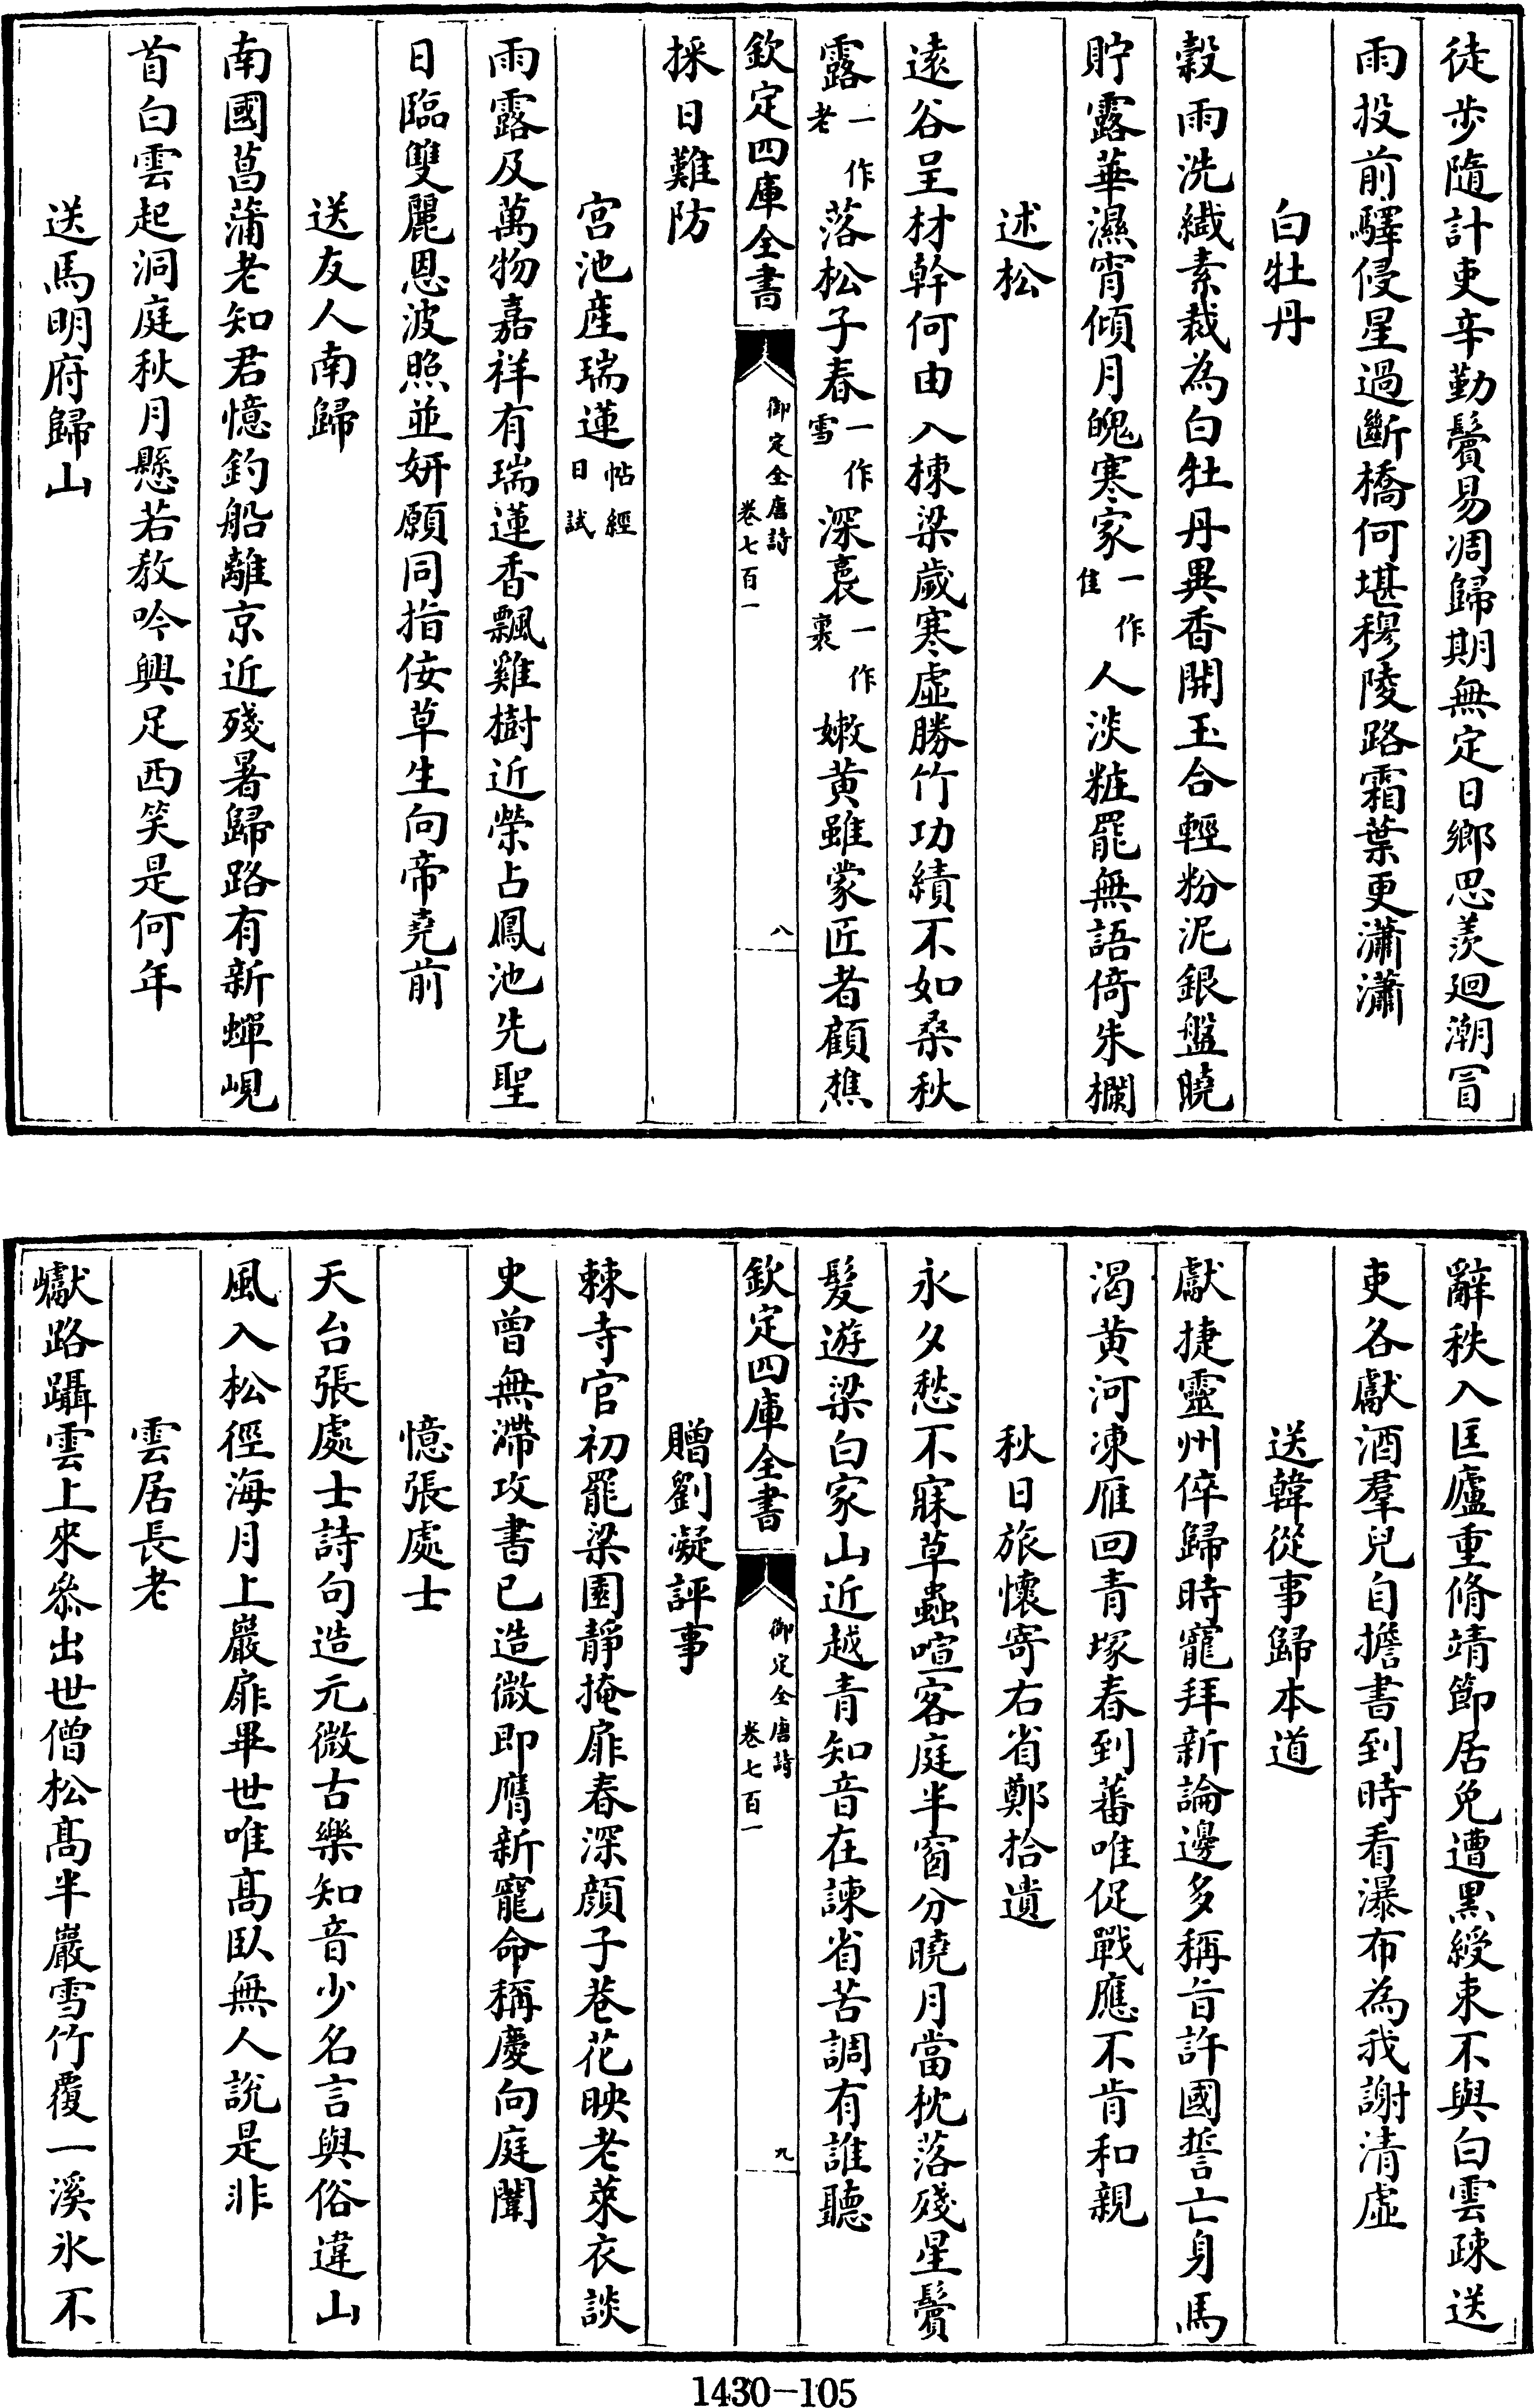 徒步隨計吏辛勤鬢易凋歸期無定日鄉思羨廻潮冒
雨投前驛侵星過斷橋何堪穆陵路霜葉更瀟瀟
白牡丹
穀雨洗纎素裁為白牡丹異香開玉合輕粉泥銀盤曉
貯露華濕宵傾月魄寒家一作佳人淡粧罷無語倚朱欄
述松
遠谷呈材幹何由入棟梁歲寒虛勝竹功績不如桑秋
露一作老落松子春一作雪深裛一作裏嫩黃雖蒙匠者顧樵
欽定四庫全書 御定全唐詩 卷七百一 八
採日難防
宮池產瑞蓮帖經日試
雨露及萬物嘉祥有瑞蓮香飄雞樹近榮占鳳池先聖
日臨雙麗恩波照並妍願同指佞草生向帝堯前
送友人南歸
南國菖蒲老知君憶釣船離京近殘暑歸路有新蟬峴
首白雲起洞庭秋月懸若教吟興足西笑是何年
送馬明府歸山
辭秩入匡廬重脩靖節居免遭黑綬束不與白雲疎送
吏各獻酒羣兒自擔書到時看瀑布為我謝清虛
送韓從事歸本道
獻捷靈州倅歸時寵拜新論邊多稱旨許國誓亡身馬
渴黃河凍雁回青塚春到蕃唯促戰應不肯和親
秋日旅懷寄右省鄭拾遺
永夕愁不寐草蟲喧客庭半窗分曉月當枕落殘星鬢
髮遊梁白家山近越青知音在諫省苦調有誰聽
欽定四庫全書 御定全唐詩 卷七百一 九
贈劉凝評事
棘寺官初罷梁園靜掩扉春深顏子巷花映老萊衣談
史曾無滯攻書已造微即膺新寵命稱慶向庭闈
憶張處士
天台張處士詩句造元微古樂知音少名言與俗違山
風入松徑海月上巖扉畢世唯高臥無人說是非
雲居長老
巘路躡雲上來參出世僧松高半巖雪竹覆一溪氷不
1430-105